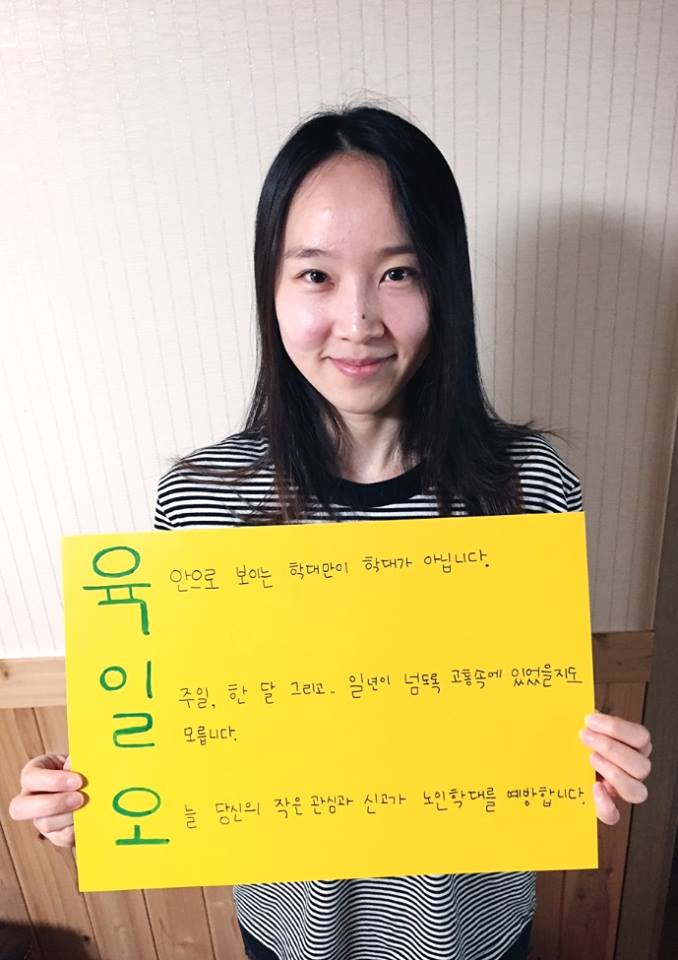 육 안으로 보이는 학대만이 학대가 아닙니다.
일 주일, 한 달 그리고.. 일년이 넘도록 고통속에 있었을지도
모릅니다.
오 늘 당신의 작은 관심과 신고가 노인학대를 예방합니다.